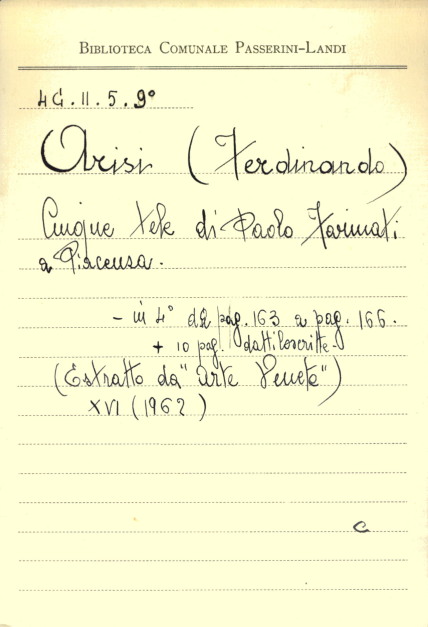 BIBLIOTECA COMUNALE PASSERINI-LANDI
4G.II.5.9°
Arisi (Ferdinando)
Cinque tele di Paolo Farinati
a Piacenza.
- in 4° da pag. 163 a pag. 166.
+ 10 pag. dattiloscritte.
(Estratto da "Arte Veneta")
XVI (1962)
C